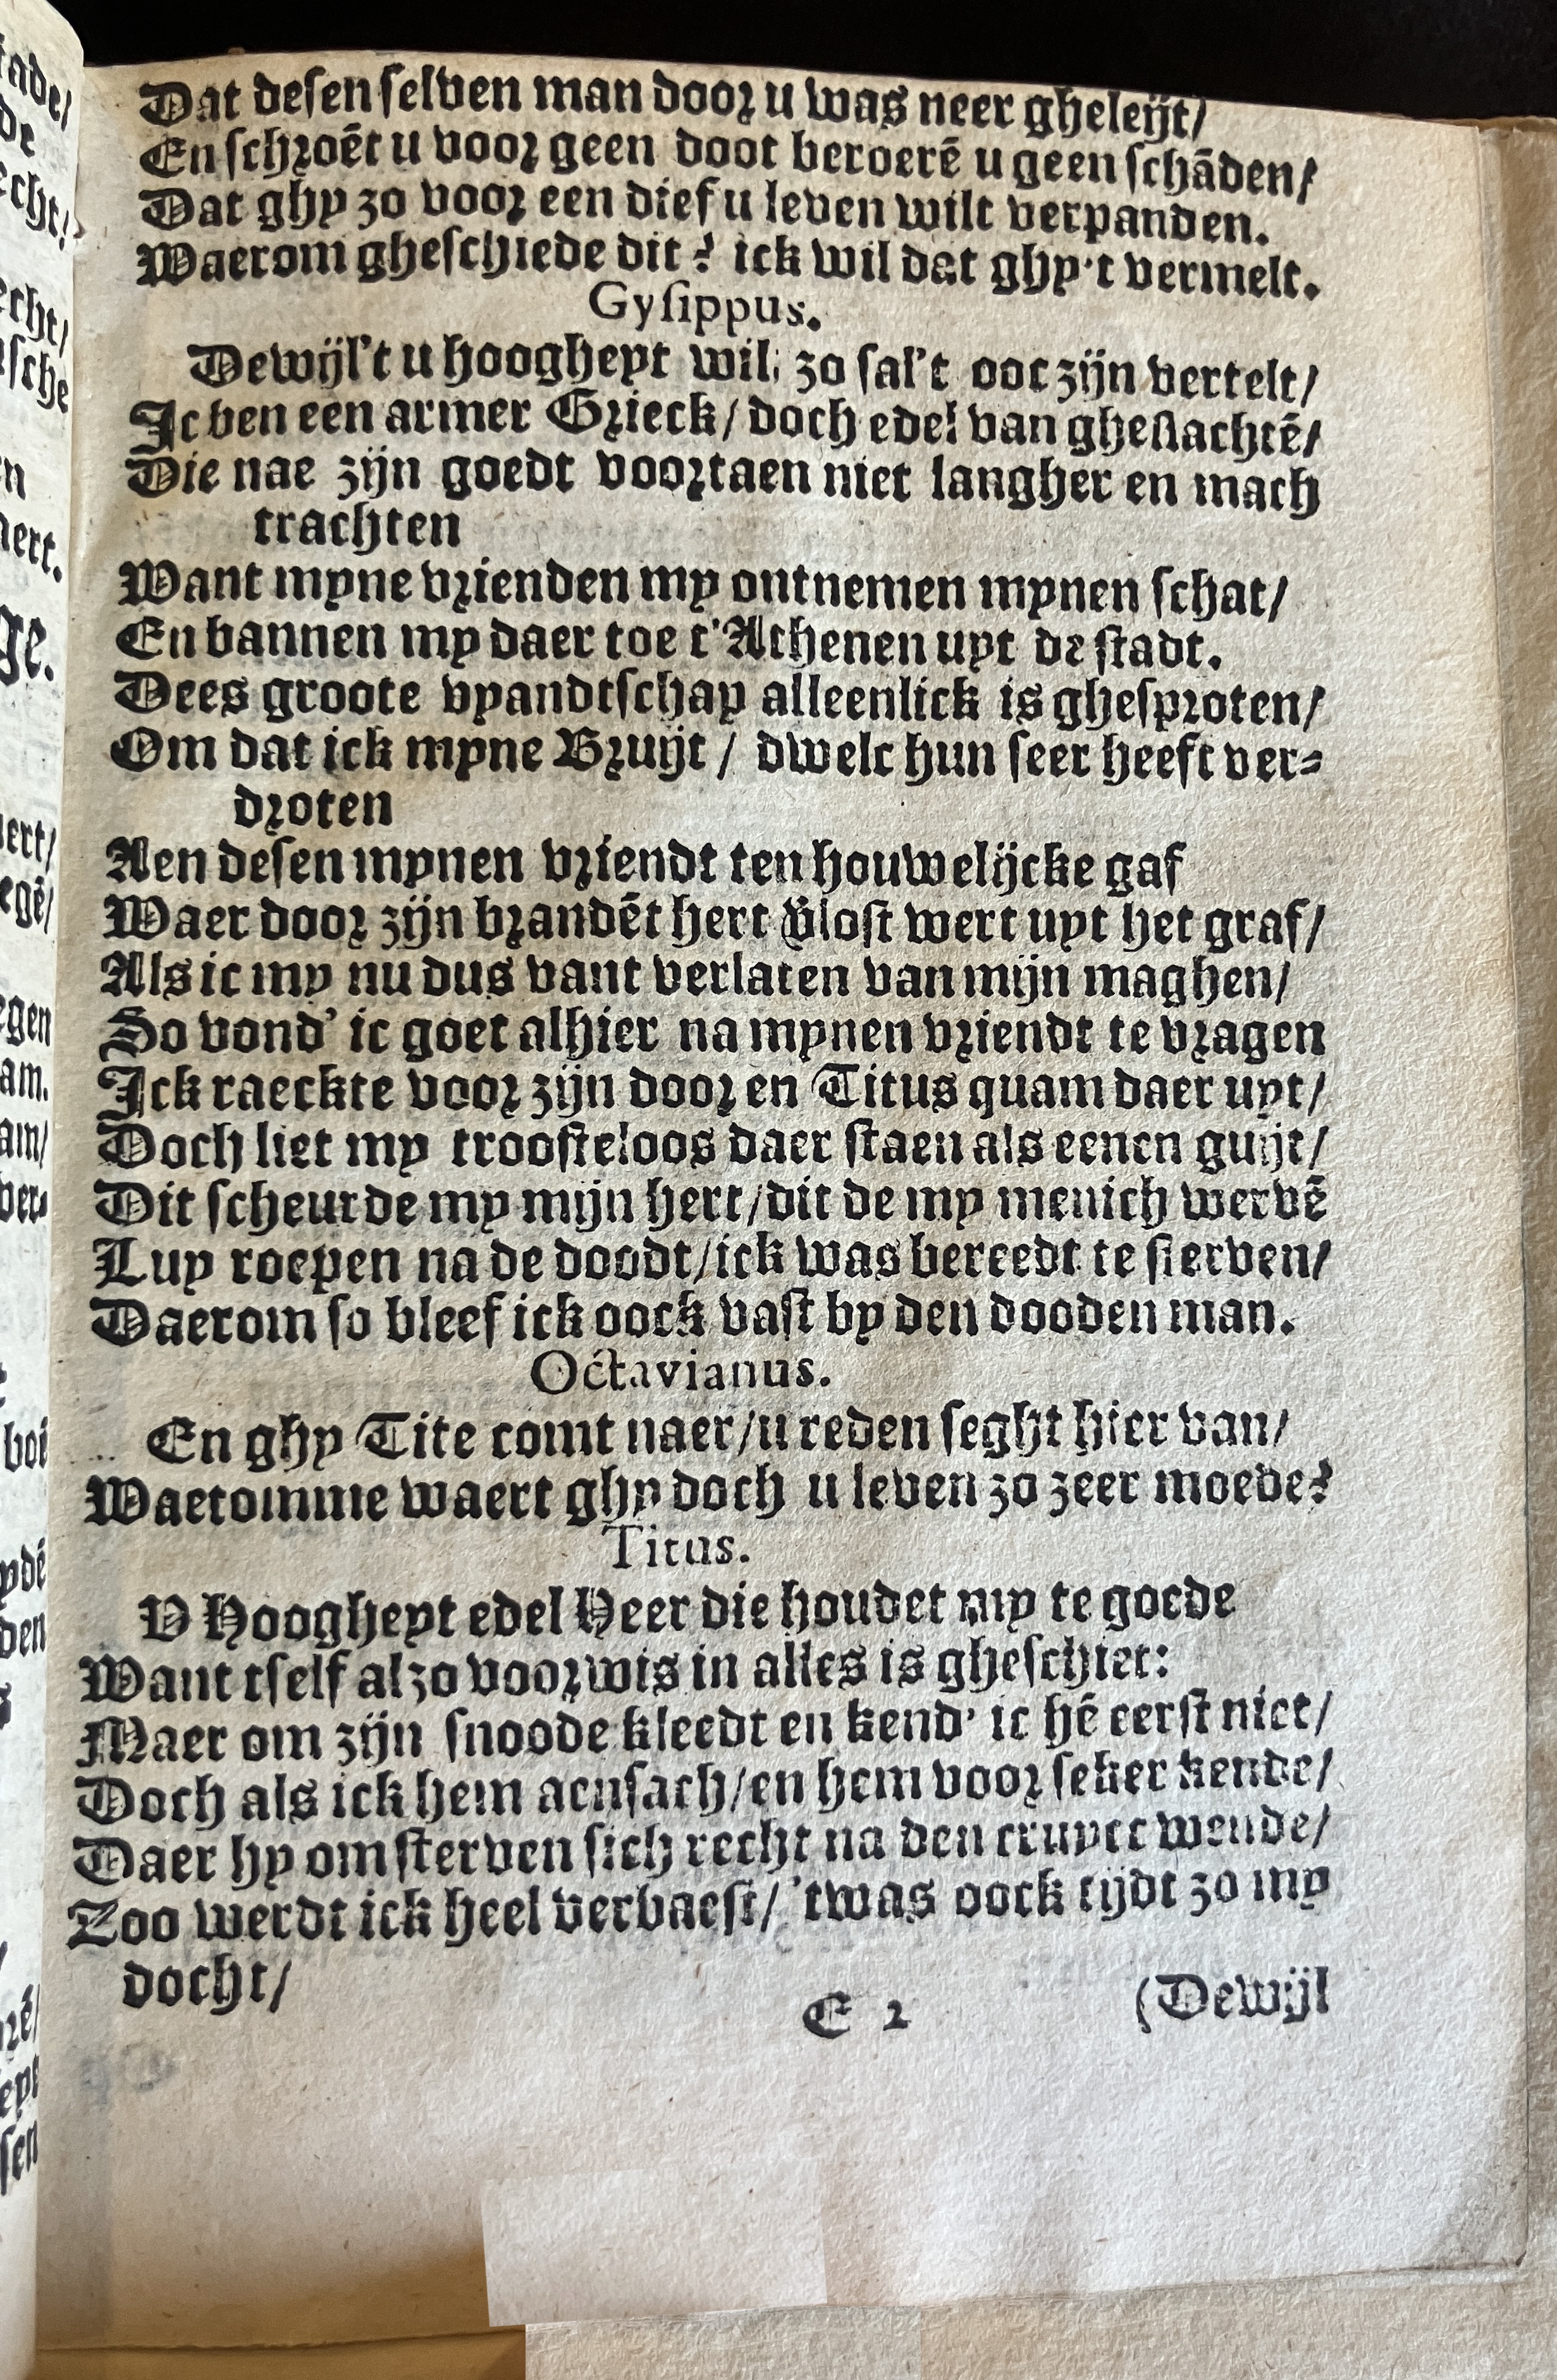 Dat desen selven man door u was neer gheleijt/
En schroēt u voor geen doot beroerē u geen schāden/
Dat ghy zo voor een dief u leven wilt verpanden.
Waerom gheschiede dit? ick wil dat ghy't vermelt.
Gysippus.
Dewijl't u hoogheyt wil, zo sal't ooc zijn vertelt/
Ic ben een armer Grieck/ doch edel van gheslachtē/
Die nae zijn goedt voortaen niet langher en mach
trachten
Want myne vrienden my ontnemen mynen schat/
En bannen my daer toe t'Athenen uyt de stadt.
Dees groote vyandtschap alleenlick is ghesproten/
Om dat ick myne Bruijt/ dwelc hun seer heeft ver-
droten
Aen desen mynen vriendt ten houwelijcke gaf
Waer door zijn brandēt hert verlost wert uyt het graf/
Als ic my nu dus vant verlaten van mijn maghen/
So vond' ic goet alhier na mynen vriendt te vragen
Ick raeckte voor zijn door en Titus quam daer uyt/
Doch liet my troosteloos daer staen als eenen guijt/
Dit scheurde my mijn hert/dit de my menich wervē
Luy roepen na de doodt/ick was bereedt te sterven/
Daerom so bleef ick oock vast by den dooden man.
Octavianus.
En ghy Tite comt naer/u reden seght hier van/
Waeromme waert ghy doch u leven zo zeer moede?
Titus.
V Hoogheyt edel Heer die houdet my te goede
Want tself alzo voorwis in alles is gheschiet:
Maer om zijn snoode kleedt en kend' ic hē eerst niet/
Doch als ick hem aensach/en hem voor seker kende/
Daer hy om sterven sich recht na den cruyce wende/
Zoo werdt ick heel verbaest/ 'twas oock tijdt zo my
docht/
E 2 (Dewijl